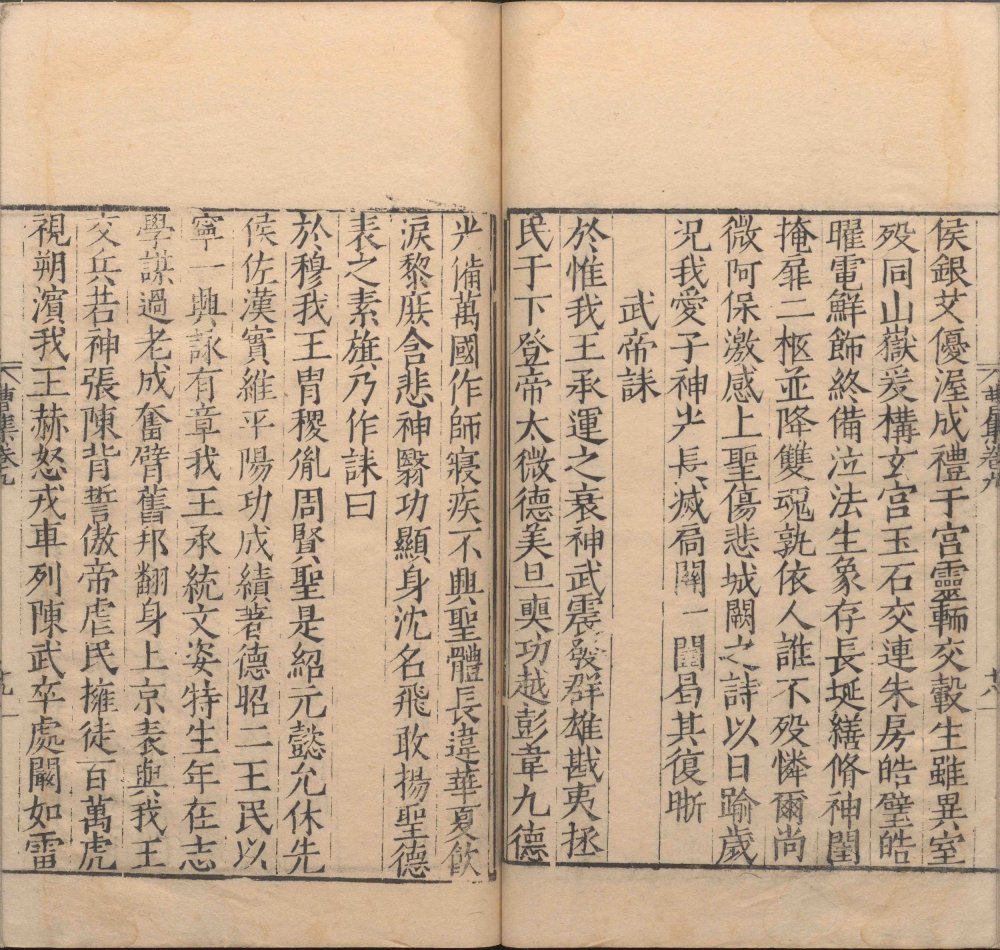 侯銀艾優渥成禮于宮靈輀交轂生雖異室
殁同山嶽爰構玄宮玉石交連朱房皓璧皓
曜電鮮飾終備泣法生象存長埏繕脩神閨
掩扉二柩並降雙魂孰依人誰不殁憐爾尚
微阿保激感上聖傷悲城闕之詩以日踰歲
況我愛子神光長滅扃關一闔曷其復晣
武帝誄
於惟我王承運之衰神武震發群雄戡夷拯
民于下登帝太微德美旦奭功越彭韋九德
光備萬國作師寢疾不興聖體長違華夏飲
淚黎庶含悲神翳功顯身沈名飛敢揚聖德
表之素旗乃作誄曰
於穆我王冑稷胤周賢聖是紹元懿允休先
侯佐漢實維平陽功成績著德昭二王民以
寧一興詠有章我王承統文姿特生年在志
學謀過老成奮臂舊邦翻身上京袁與我王
交兵若神張陳背誓傲帝虐民擁徒百萬虎
視朔濱我王赫怒戎車列陳武卒虓闞如雷
曹集卷九
十九